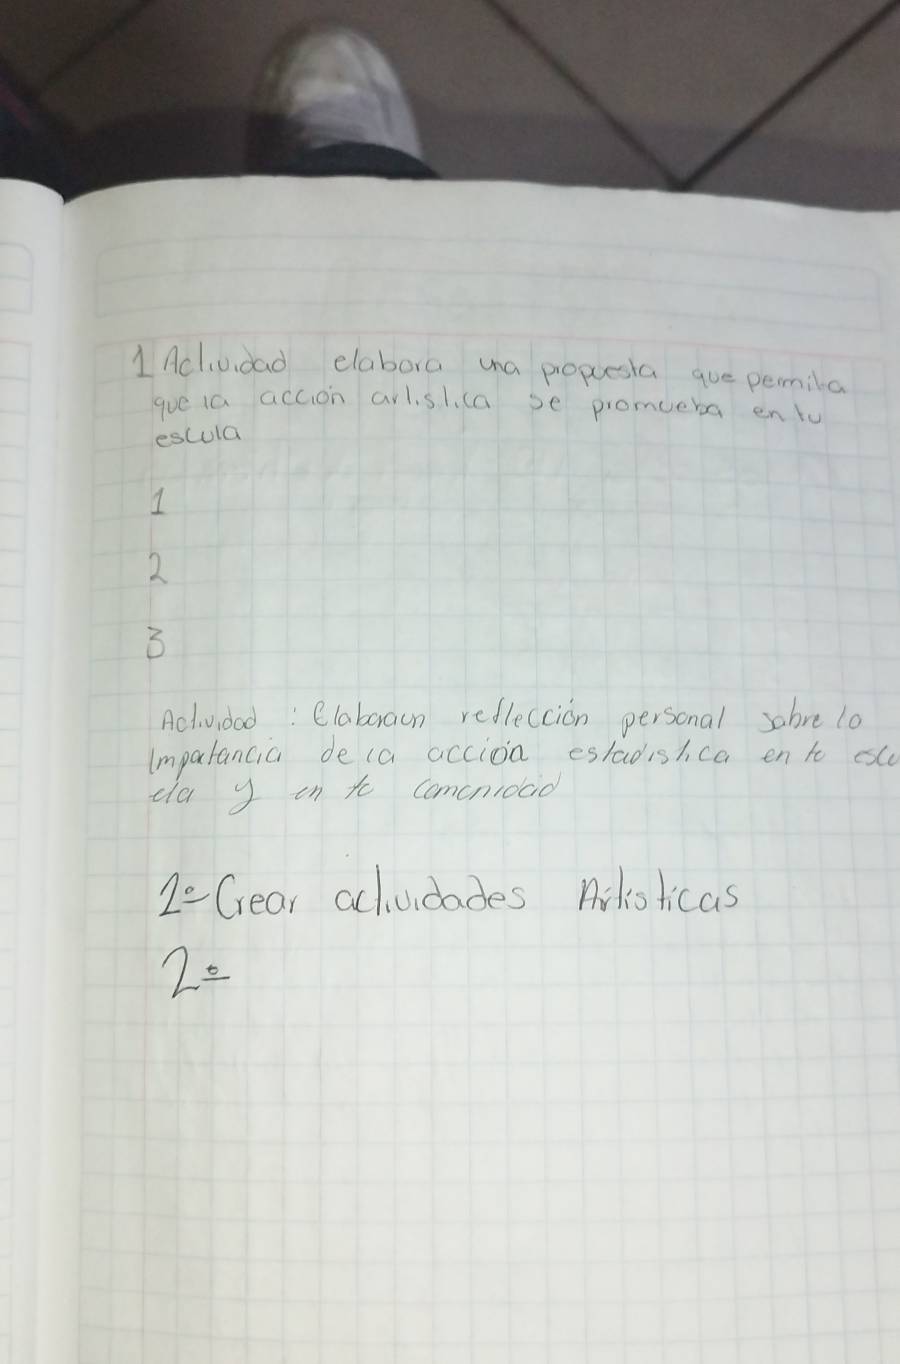 1 Actividad elabora una propuesta que permita
que la acción artistica se promueba en tu
escula
1
2
3
Actividad : Elaboraun reflección personal sabre lo
Impartancia de la acción estadistica en tc escu
ela y en tc comonidad
1º- Crear actividades Artisticas
2º-